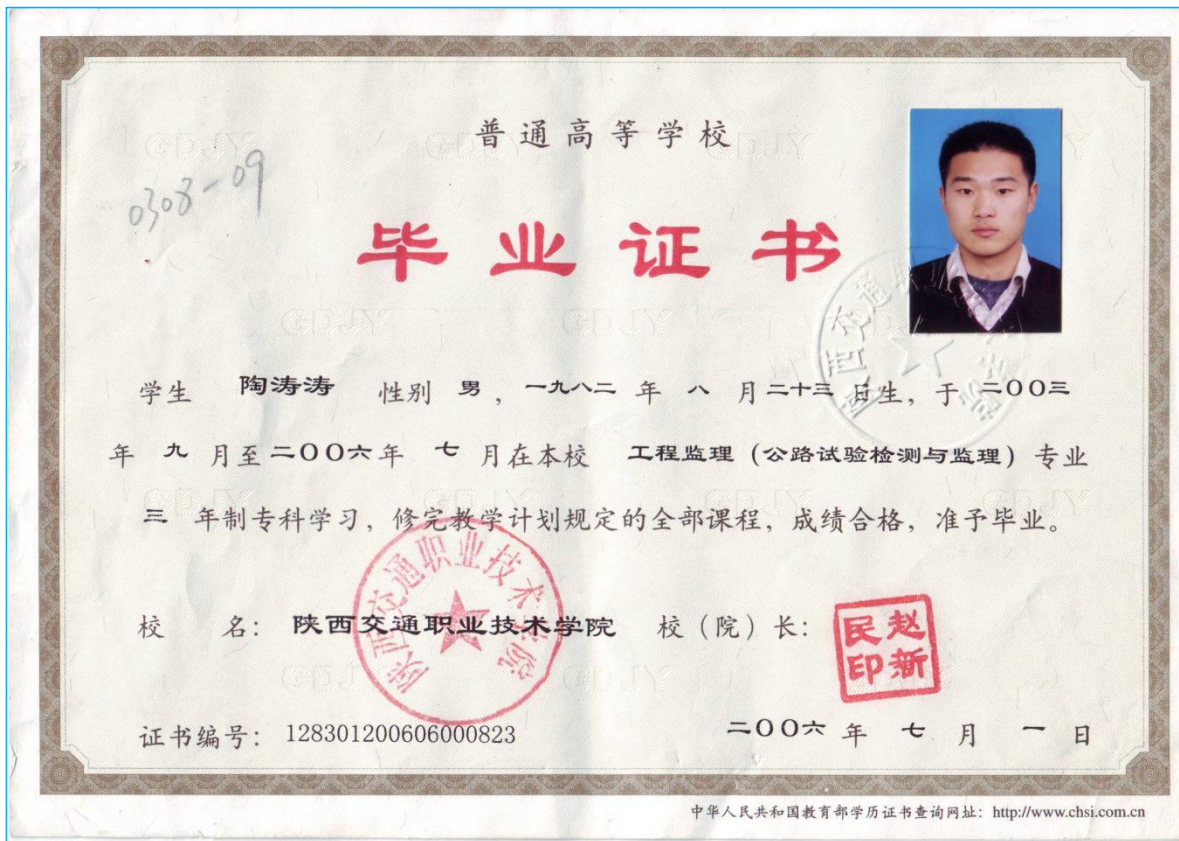 普通高等学校
0308-09
毕业证书
学生 陶涛涛 性别 男，一九八二 年 八 月 二十三 日生，于 二〇〇三
年 九 月至 二〇〇六 年 七 月在本校 工程监理（公路试验检测与监理）专业
三 年制专科学习，修完教学计划规定的全部课程，成绩合格，准予毕业。
校 名： 陕西交通职业技术学院 校（院）长：
陕西交通职业技术学院
赵新民印
证书编号：128301200606000823 二〇〇六 年 七 月 一 日
中华人民共和国教育部学历证书查询网址：http://www.chsi.com.cn